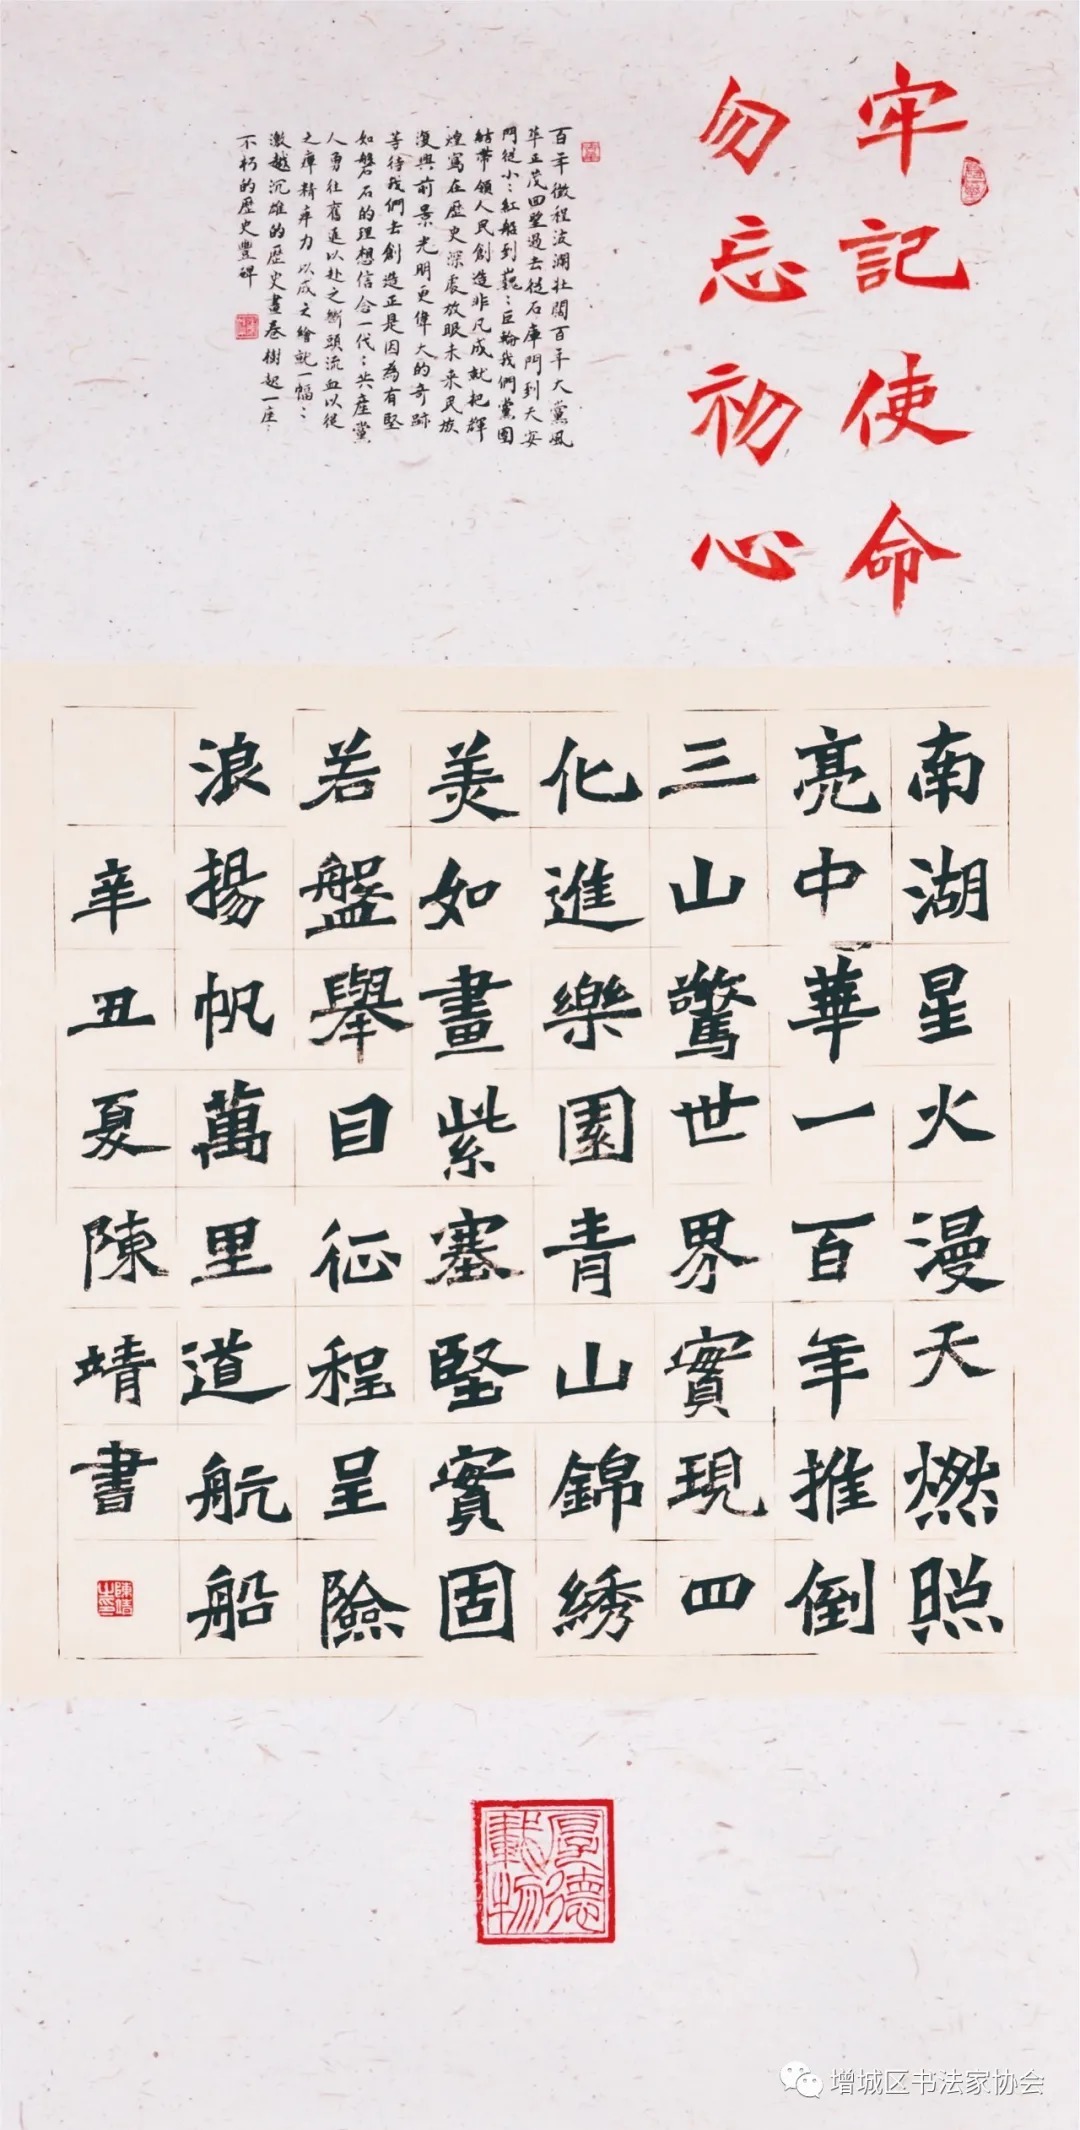 牢記使命
勿忘初心
百年徵程波瀾壯闊百年大黨風
华正茂回望過去從石庫門到天安
門從小:紅船到巍:巨輪我們黨團
結帶領人民創造非凡成就把輝
煌寫在歷史深處放眼未来民族
復興前景光明更偉大的奇跡
等待我們去創造正是因為有堅
如磐石的理想信念一代:共產黨
人勇往奮進以赴之斷頭流血以從
之殫精卒力以成之繪就一幅:
激越沉雄的歷史畫卷樹起一座:
不朽的歷史豐碑
南湖星火漫天燃照
亮中華一百年推倒
三山驚世界實現四
化進樂園青山錦綉
美如畫紫塞堅實固
若盤舉目征程呈險
浪揚帆萬里道航船
辛丑夏陳靖書
陳靖之印
厚德載物
增城区书法家协会